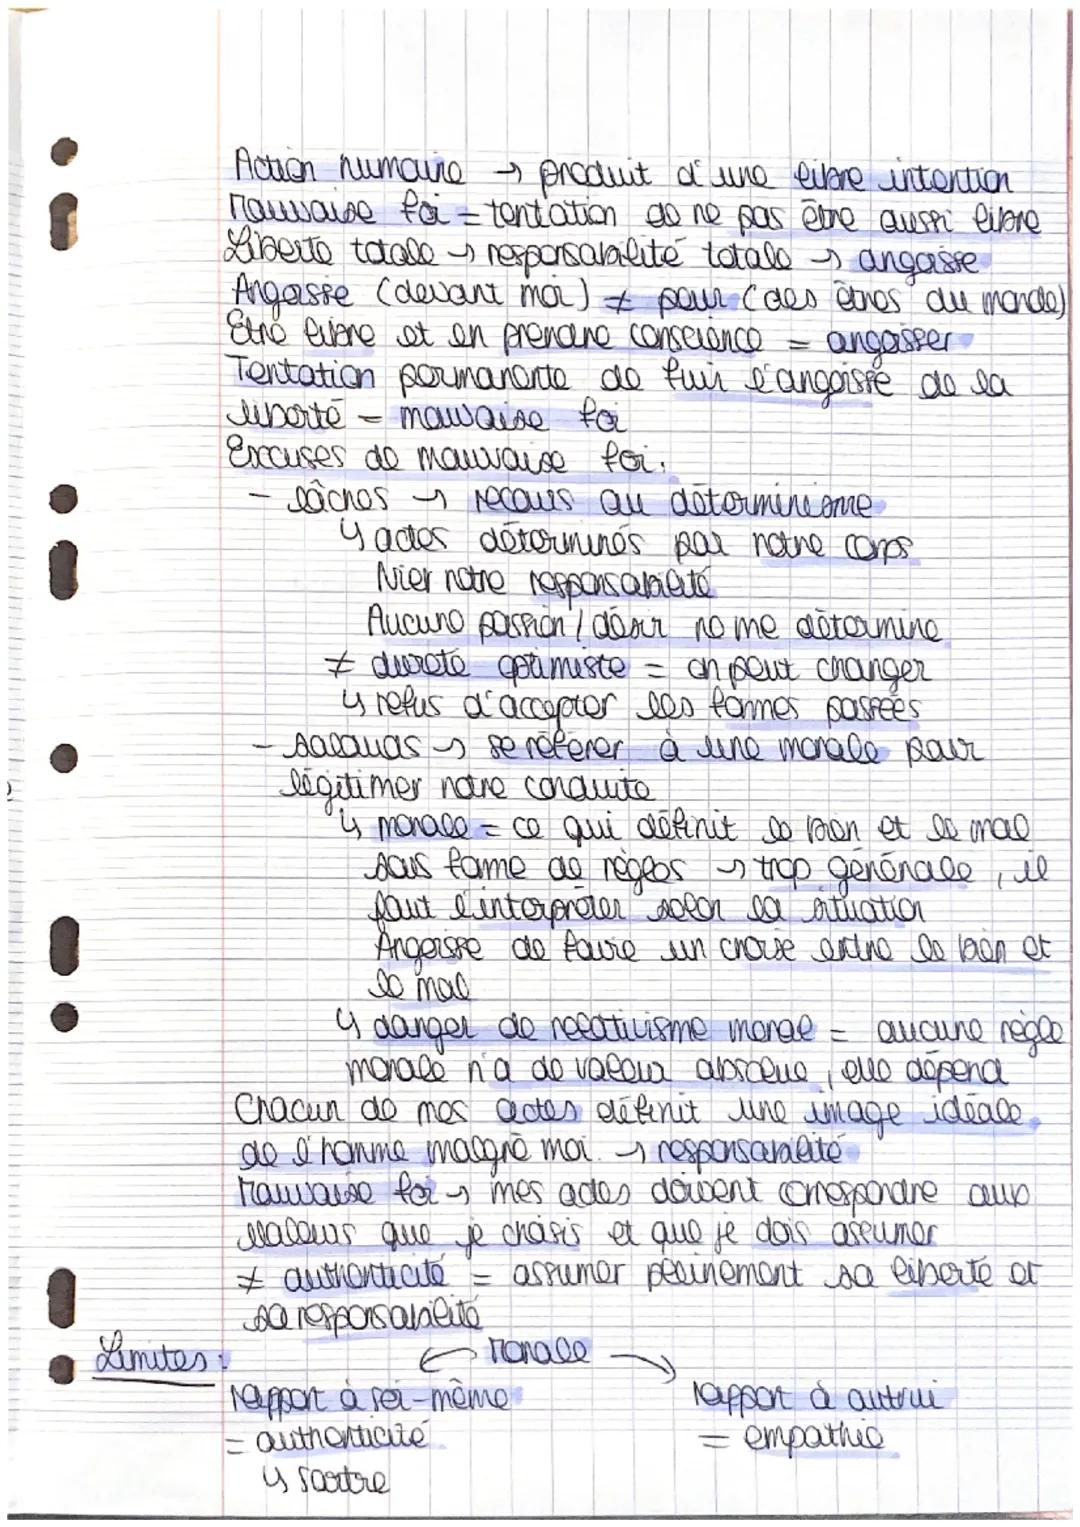 Action humaine → produit d'une libre intention
Mauvaise foi = tentation de ne pas être aussi libre
Liberté totale → responsabilité totale → angoisse
Angoisse (devant moi) ≠ peur (des êtres du monde)
Etre libre et en prendre conscience = angoisser
Tentation permanente de fuir l'angoisse de la
liberté = mauvaise foi
Excuses de mauvaise foi.
- lâches → recours au déterminisme
↳ actes déterminés par notre corps
Nier notre responsabilité
Aucune passion / désir ne me détermine
≠ dureté optimiste = on peut changer
↳ refus d'accepter les formes passées
- salauds → se référer à une morale pour
légitimer notre conduite
↳ morale = ce qui définit le bien et le mal
sous forme de règles → trop générale, il
faut l'interpréter selon la situation
Angoisse de faire un choix entre le bien et
le mal
↳ danger de relativisme moral = aucune règle
morale n'a de valeur absolue, elle dépend
Chacun de mes actes définit une image idéale
de l'homme malgré moi. → responsabilité
Mauvaise foi → mes actes doivent correspondre aux
valeurs que je choisis et que je dois assumer
≠ authenticité = assumer pleinement sa liberté et
sa responsabilité
Limites : ← Morale →
rapport à soi-même rapport à autrui
= authenticité = empathie
↳ sartre